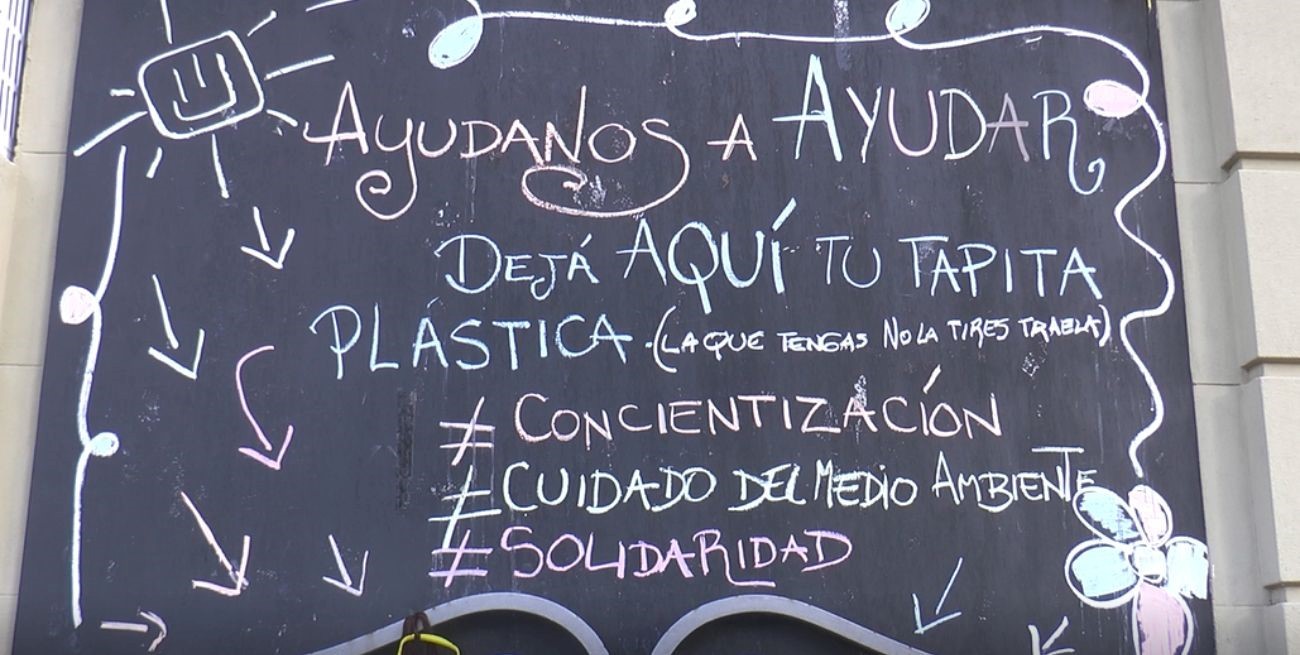 AYUDANOS A AYUDAR
DEJÁ AQUÍ TU TAPITA
PLÁSTICA.(LA QUE TENGAS NO LA TIRES TRAELA)
# CONCIENTIZACIÓN
# CUIDADO DEL MEDIO AMBIENTE
# SOLIDARIDAD